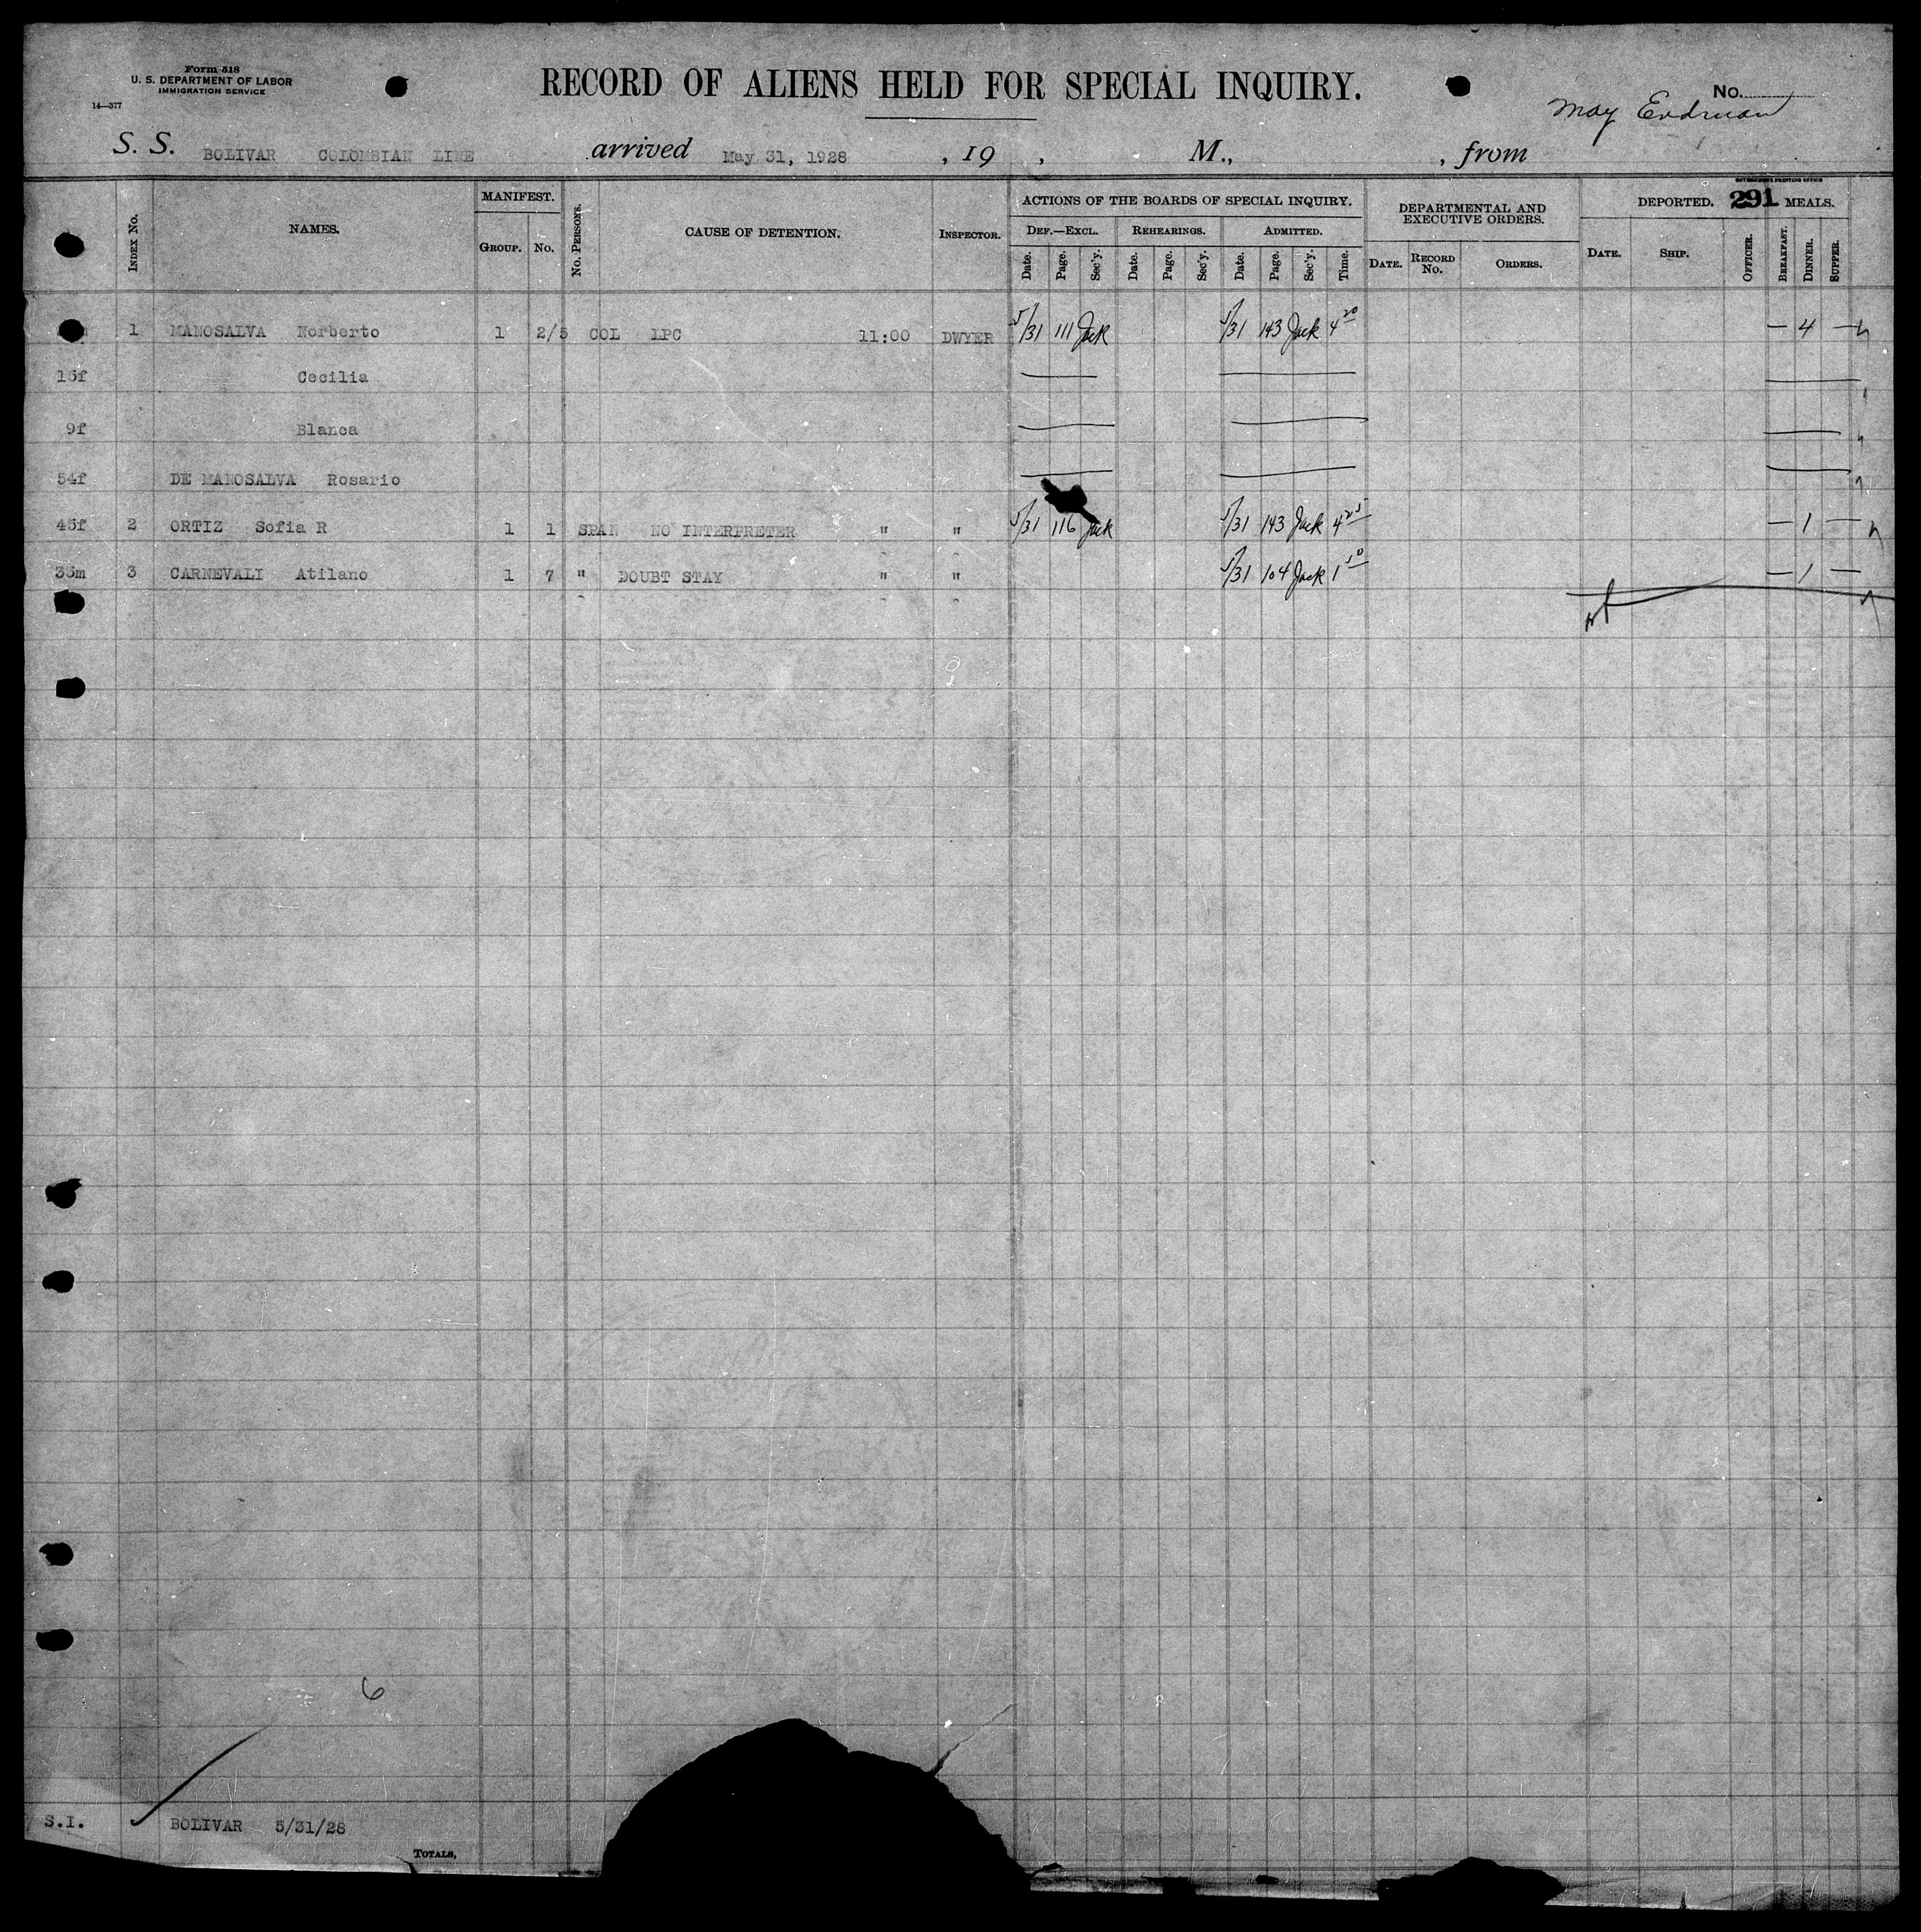 Form 518
U. S. DEPARTMENT OF LABOR
IMMIGRATION SERVICE
14—377
RECORD OF ALIENS HELD FOR SPECIAL INQUIRY.
No.
May Erdman
S. S. BOLIVAR COLOMBIAN LINE arrived May 31, 1928 , 19 , M., , from
GOVERNMENT PRINTING OFFICE
291
INDEX No. NAMES. MANIFEST. GROUP. No. No. PERSONS. CAUSE OF DETENTION. INSPECTOR. ACTIONS OF THE BOARDS OF SPECIAL INQUIRY. DEPARTMENTAL AND EXECUTIVE ORDERS. DEPORTED. MEALS.
DEF.—EXCL. REHEARINGS. ADMITTED.
Date. Page. Sec'y. Date. Page. Sec'y. Date. Page. Sec'y. Time. DATE. RECORD No. ORDERS. DATE. SHIP. OFFICER. BREAKFAST. DINNER. SUPPER.
1 MANOSALVA Norberto 1 2/5 COL LPC 11:00 DWYER 5/31 111 Jack 5/31 143 Jack 4 20 — 4 —
15f Cecilia
9f Blanca
54f DE MANOSALVA Rosario
45f 2 ORTIZ Sofia R 1 1 SPAN NO INTERPRETER " " 5/31 116 Jack 5/31 143 Jack 4 25 — 1 —
33m 3 CARNEVALI Atilano 1 7 " DOUBT STAY " " 5/31 104 Jack 1 50 — 1 —
6
S.I. BOLIVAR 5/31/28
TOTALS,